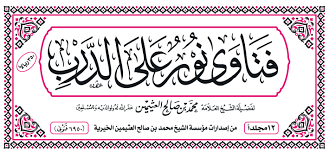 فتاوى نور على الدرب
لفضيلة الشيخ العلامة محمد بن صالح العثيمين غفر الله له ولوالديه وللمسلمين
١٢ مجلداً
من إصدارات مؤسسة الشيخ محمد بن صالح العثيمين الخيرية